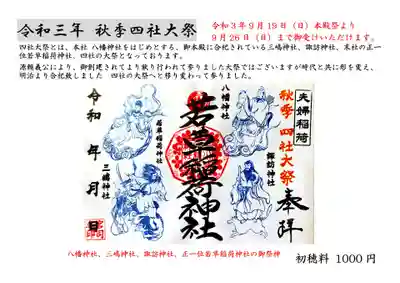 令和三年 秋季四社大祭
令和３年９月１９日（日）本殿祭より
９月２６日（日）まで御受けいただけます。
四社大祭とは、本社 八幡神社をはじめとする、御本殿に合祀されている三嶋神社、諏訪神社、末社の正一
位若草稲荷神社、四社の大祭となっております。
源頼義公により、御創建されてより執り行われて参りました大祭ではございますが時代と共に形を変え、
明治より合祀致しました 四社の大祭へと移り変わって参りました。
夫婦稲荷
秋季四社大祭
奉拝
諏訪神社
八幡神社
若草稲荷神社
若草稲荷神社
三嶋神社
令和 年 月 日
八幡神社、三嶋神社、諏訪神社、正一位若草稲荷神社の御祭神
初穂料 1000 円